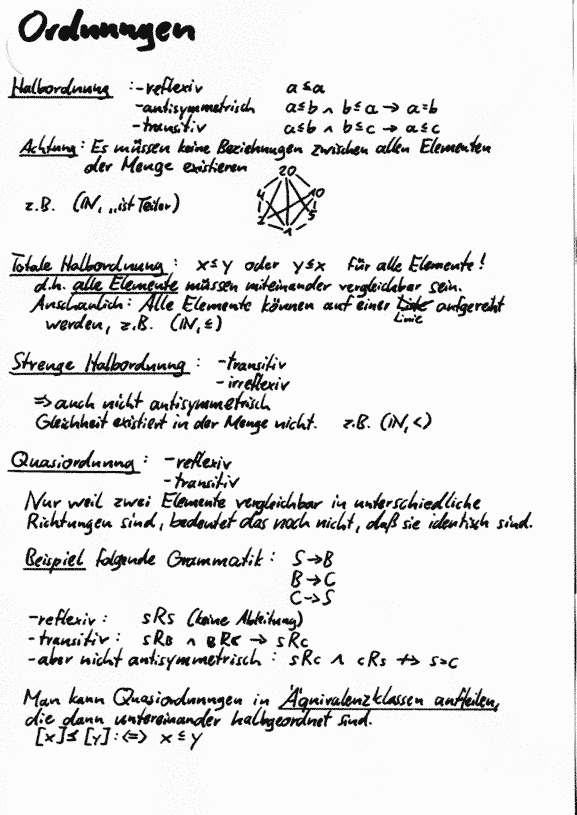 Ordnungen
Halbordnung : -reflexiv a≤a
-antisymmetrisch a≤b ∧ b≤a → a=b
-transitiv a≤b ∧ b≤c → a≤c
Achtung: Es müssen keine Beziehungen zwischen allen Elementen
der Menge existieren
z.B. (ℕ, „ist Teiler)
20
4 10
2 5
1
Totale Halbordnung : x≤y oder y≤x für alle Elemente!
d.h. alle Elemente müssen miteinander vergleichbar sein.
Anschaulich: Alle Elemente können auf einer aufgereiht
Linie
werden, z.B. (ℕ, ≤)
Strenge Halbordnung : -transitiv
-irreflexiv
⇒ auch nicht antisymmetrisch
Gleichheit existiert in der Menge nicht. z.B. (ℕ, <)
Quasiordnung : -reflexiv
-transitiv
Nur weil zwei Elemente vergleichbar in unterschiedliche
Richtungen sind, bedeutet das noch nicht, daß sie identisch sind.
Beispiel folgende Grammatik : S→B
B→C
C→S
-reflexiv: sRs (keine Ableitung)
-transitiv: sRB ∧ BRC → sRc
-aber nicht antisymmetrisch : sRc ∧ cRs ↛ s=c
Man kann Quasiordnungen in Äquivalenzklassen aufteilen,
die dann untereinander halbgeordnet sind.
[x]≤[y] :⇔ x≤y